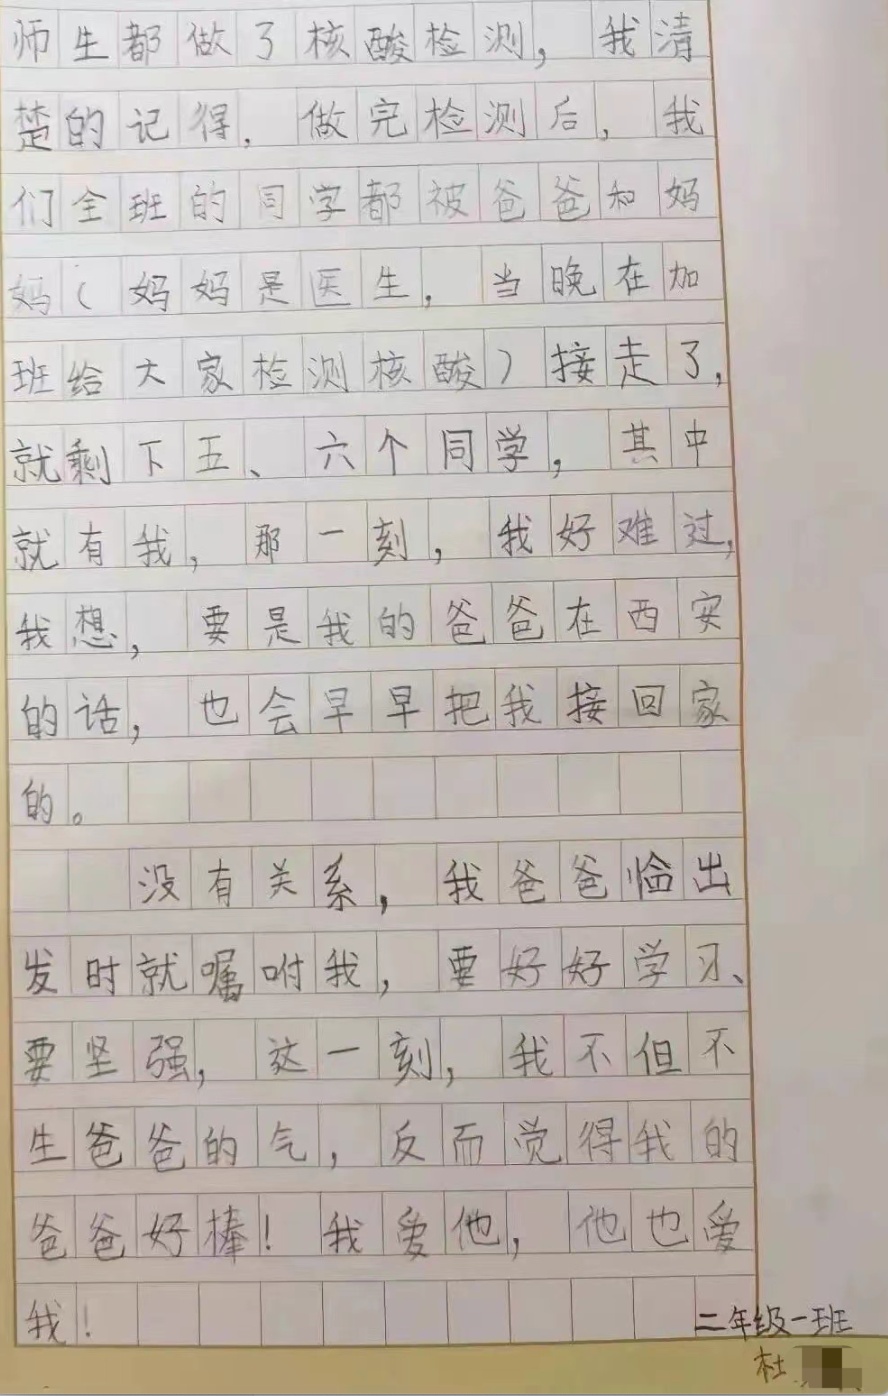 师生都做了核酸检测，我清
楚的记得，做完检测后，我
们全班的同学都被爸爸和妈
妈（妈妈是医生，当晚在加
班给大家检测核酸）接走了，
就剩下五、六个同学，其中
就有我，那一刻，我好难过，
我想，要是我的爸爸在西安
的话，也会早早把我接回家
的。
没有关系，我爸爸临出
发时就嘱咐我，要好好学习、
要坚强，这一刻，我不但不
生爸爸的气，反而觉得我的
爸爸好棒！我爱他，他也爱
我！
二年级一班
杜